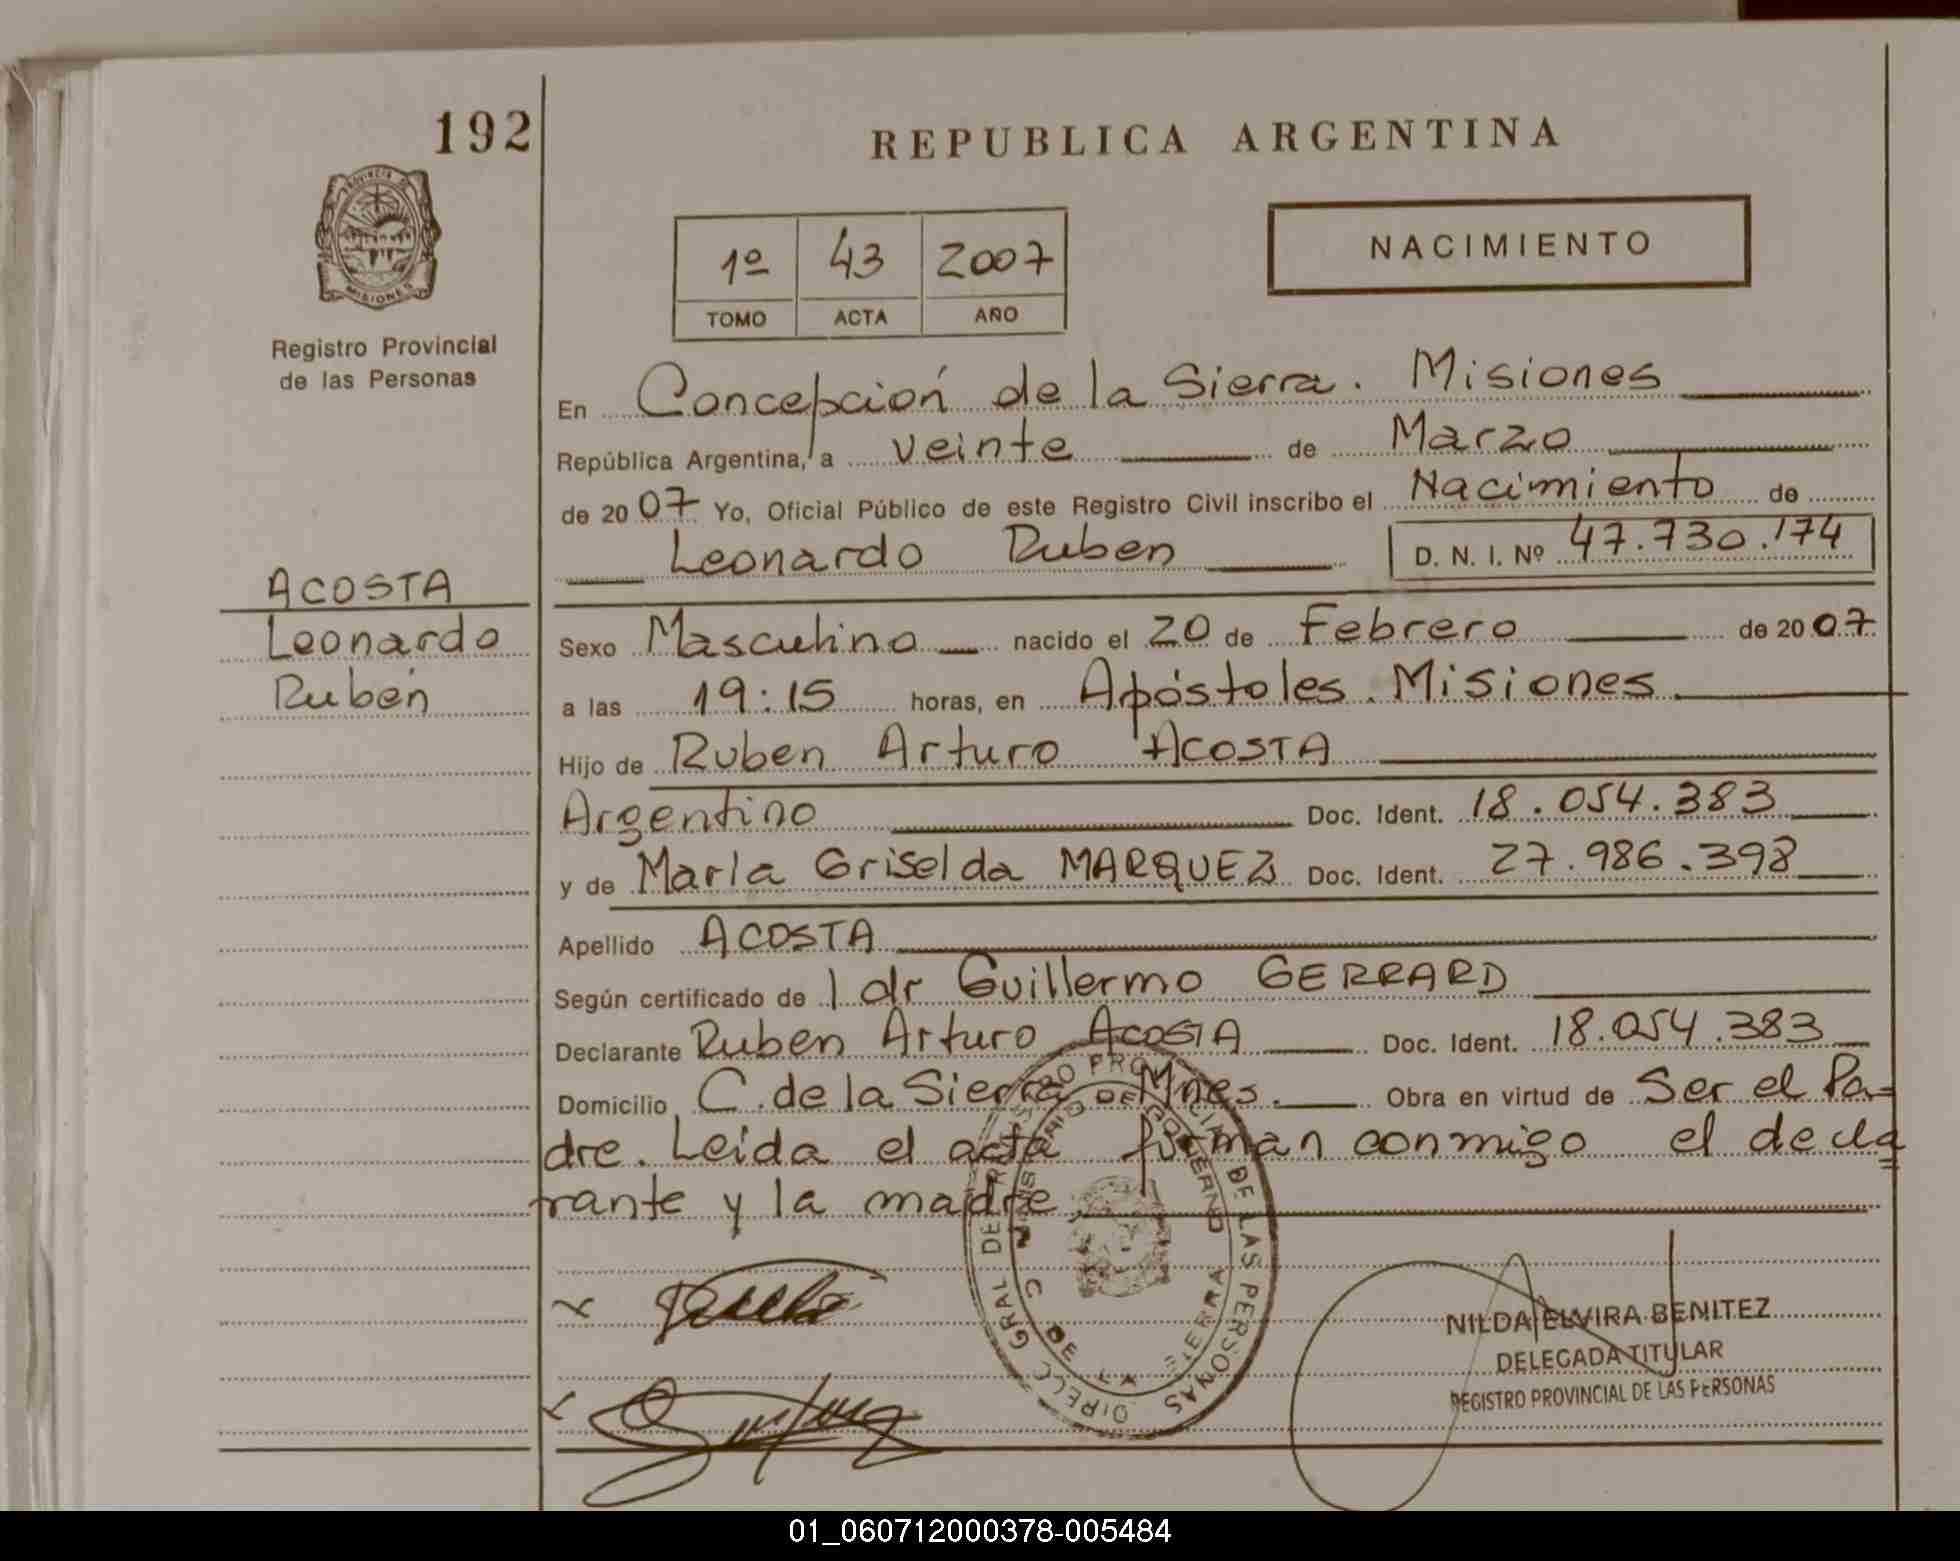 192
REPUBLICA ARGENTINA
PROVINCIA DE
MISIONES
Registro Provincial
de las Personas
1º 43 2007
TOMO ACTA AÑO
NACIMIENTO
En Concepción de la Sierra. Misiones
República Argentina, a veinte de Marzo
de 2007 Yo, Oficial Público de este Registro Civil inscribo el Nacimiento de
Leonardo Ruben D. N. I. Nº 47.730.174
ACOSTA
Leonardo
Rubén
Sexo Masculino nacido el 20 de Febrero de 2007
a las 19:15 horas, en Apóstoles. Misiones
Hijo de Ruben Arturo ACOSTA
Argentino Doc. Ident. 18.054.383
y de María Griselda MARQUEZ Doc. Ident. 27.986.398
Apellido ACOSTA
Según certificado de l dr Guillermo GERRARD
Declarante Ruben Arturo ACOSTA Doc. Ident. 18.054.383
Domicilio C. de la Sierra Mnes. Obra en virtud de Ser el Pa-
dre. Leída el acta firman conmigo el decla
rante y la madre
DIRECC GRAL DE REGISTRO PROVINCIAL DE LAS PERSONAS
MINISTERIO DE GOBIERNO
NILDA ELVIRA BENITEZ
DELEGADA TITULAR
REGISTRO PROVINCIAL DE LAS PERSONAS
01_060712000378-005484